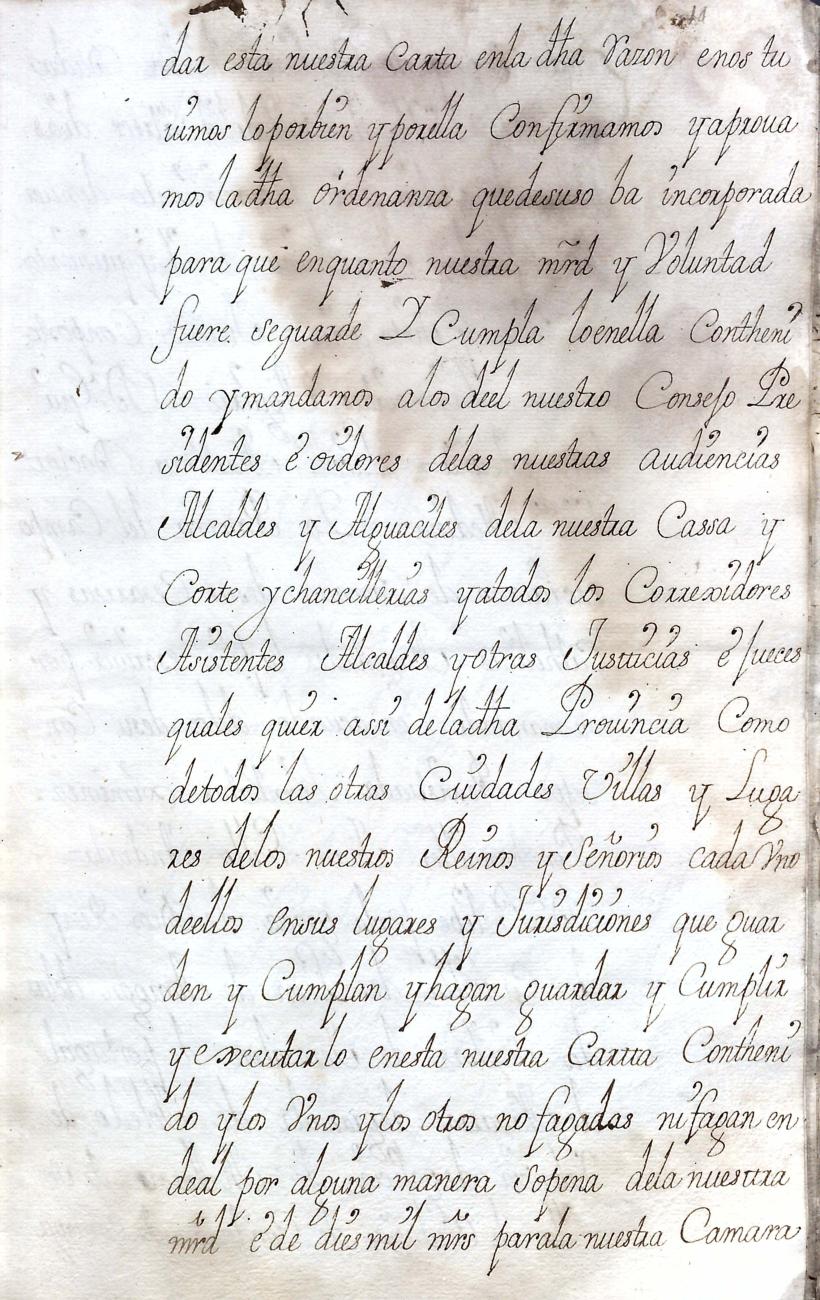 dar esta nuestra Carta enla dha razon enos tu
uimos loporbien yporella Confirmamos yaproua
mos ladha ordenanza quedesuso ba incorporada
para que enquanto nuestra mrd y Voluntad
fuere seguarde Y Cumpla loenella Contheni
do ymandamos alos deel nuestro Consejo Pre
sidentes e oidores delas nuestras audiencias
Alcaldes y Alguaciles dela nuestra Cassa y
Corte ychancillerias yatodos los Correxidores
Asistentes Alcaldes yotras Justicias e Jueces
quales quier assi deladha Prouincia Como
detodos las otras Ciudades Villas y Luga
res delos nuestros Reinos y Señorios cada Vno
deellos ensus lugares y Jurisdiciones que guar
den y Cumplan yhagan guardar y Cumplir
y executarlo enesta nuestra Cartta Contheni
do ylos Vnos ylos otros no fagadas ni fagan en
deal por alguna manera sopena dela nuesttra
mrd e de diesmil mrs parala nuestra Camara